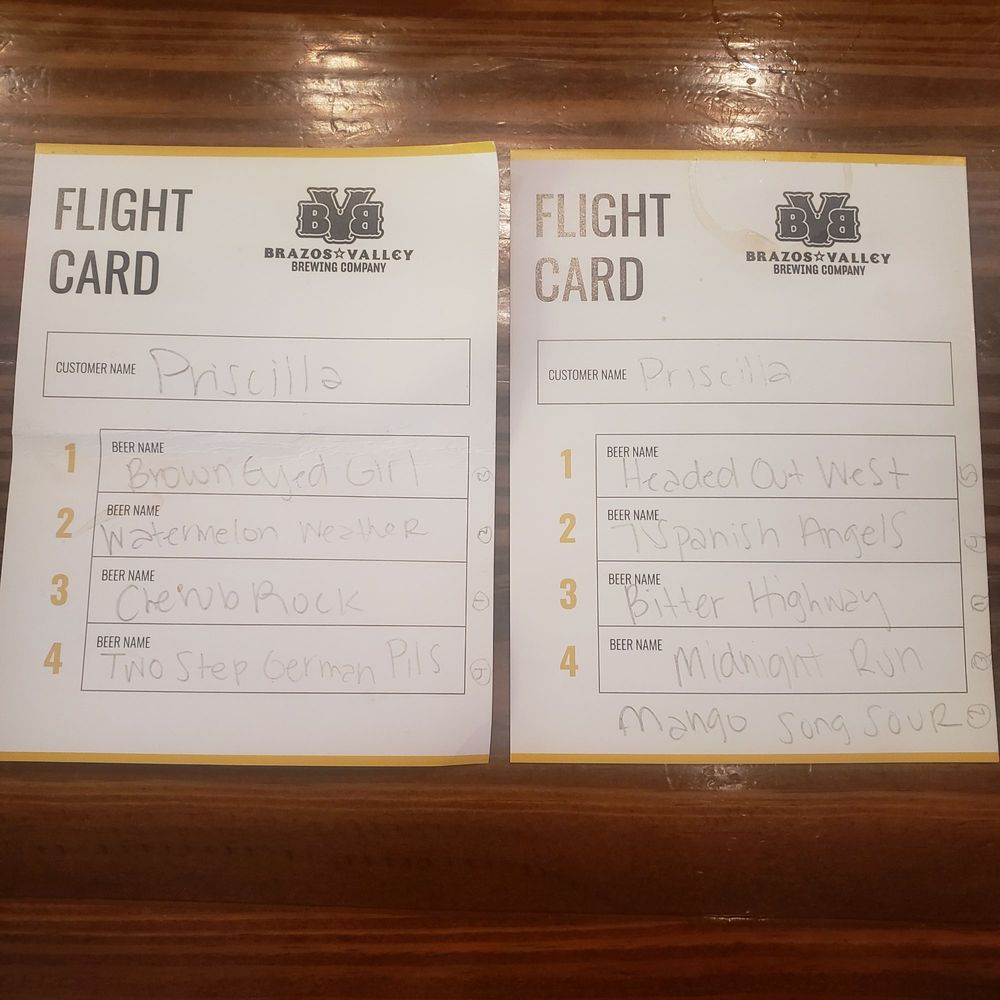 FLIGHT
CARD
BVB
BRAZOS☆VALLEY
BREWING COMPANY
CUSTOMER NAME Priscilla
1 BEER NAME
Brown Eyed Girl
2 BEER NAME
Watermelon Weather
3 BEER NAME
Cherub Rock
4 BEER NAME
Two Step German Pils
FLIGHT
CARD
BVB
BRAZOS☆VALLEY
BREWING COMPANY
CUSTOMER NAME Priscilla
1 BEER NAME
Headed Out West
2 BEER NAME
7 Spanish Angels
3 BEER NAME
Bitter Highway
4 BEER NAME Midnight Run
Mango Song Sour